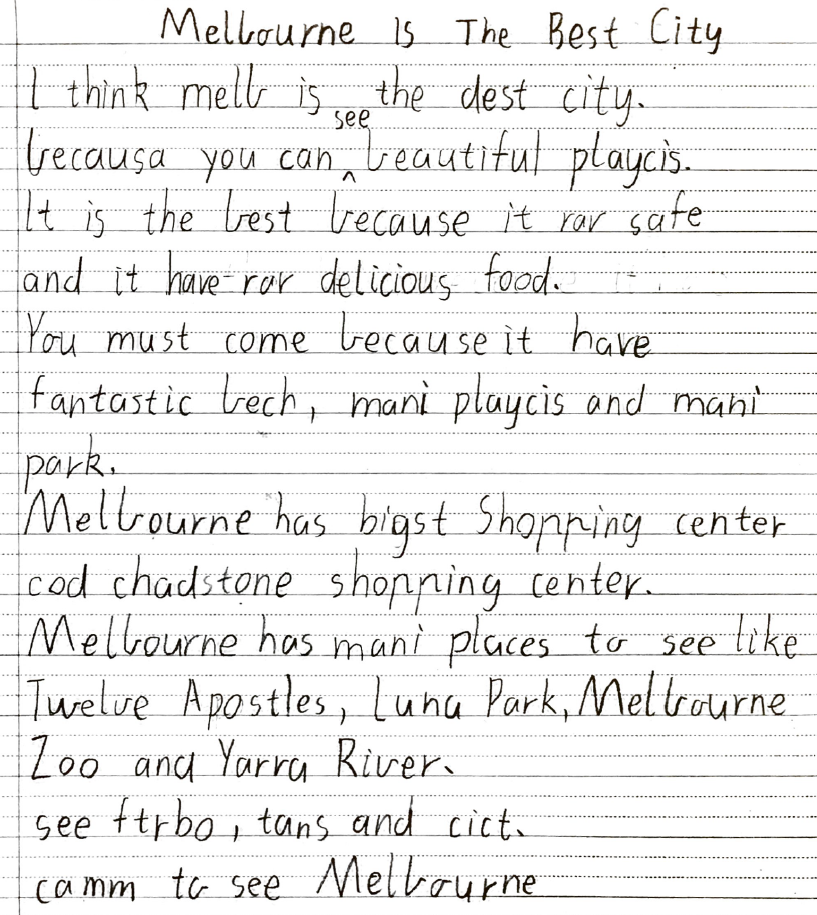 Melbourne Is The Best City
I think melb is the dest city.
becausa you can see beautiful playcis.
It is the best because it rar safe
and it have rar delicious food.
You must come because it have
fantastic bech, mani playcis and mani
park.
Melbourne has bigst Shopping center
cod chadstone shopping center.
Melbourne has mani places to see like
Twelve Apostles, Luna Park, Melbourne
Zoo and Yarra River.
see ftrbo, tans and cict.
camm to see Melbourne